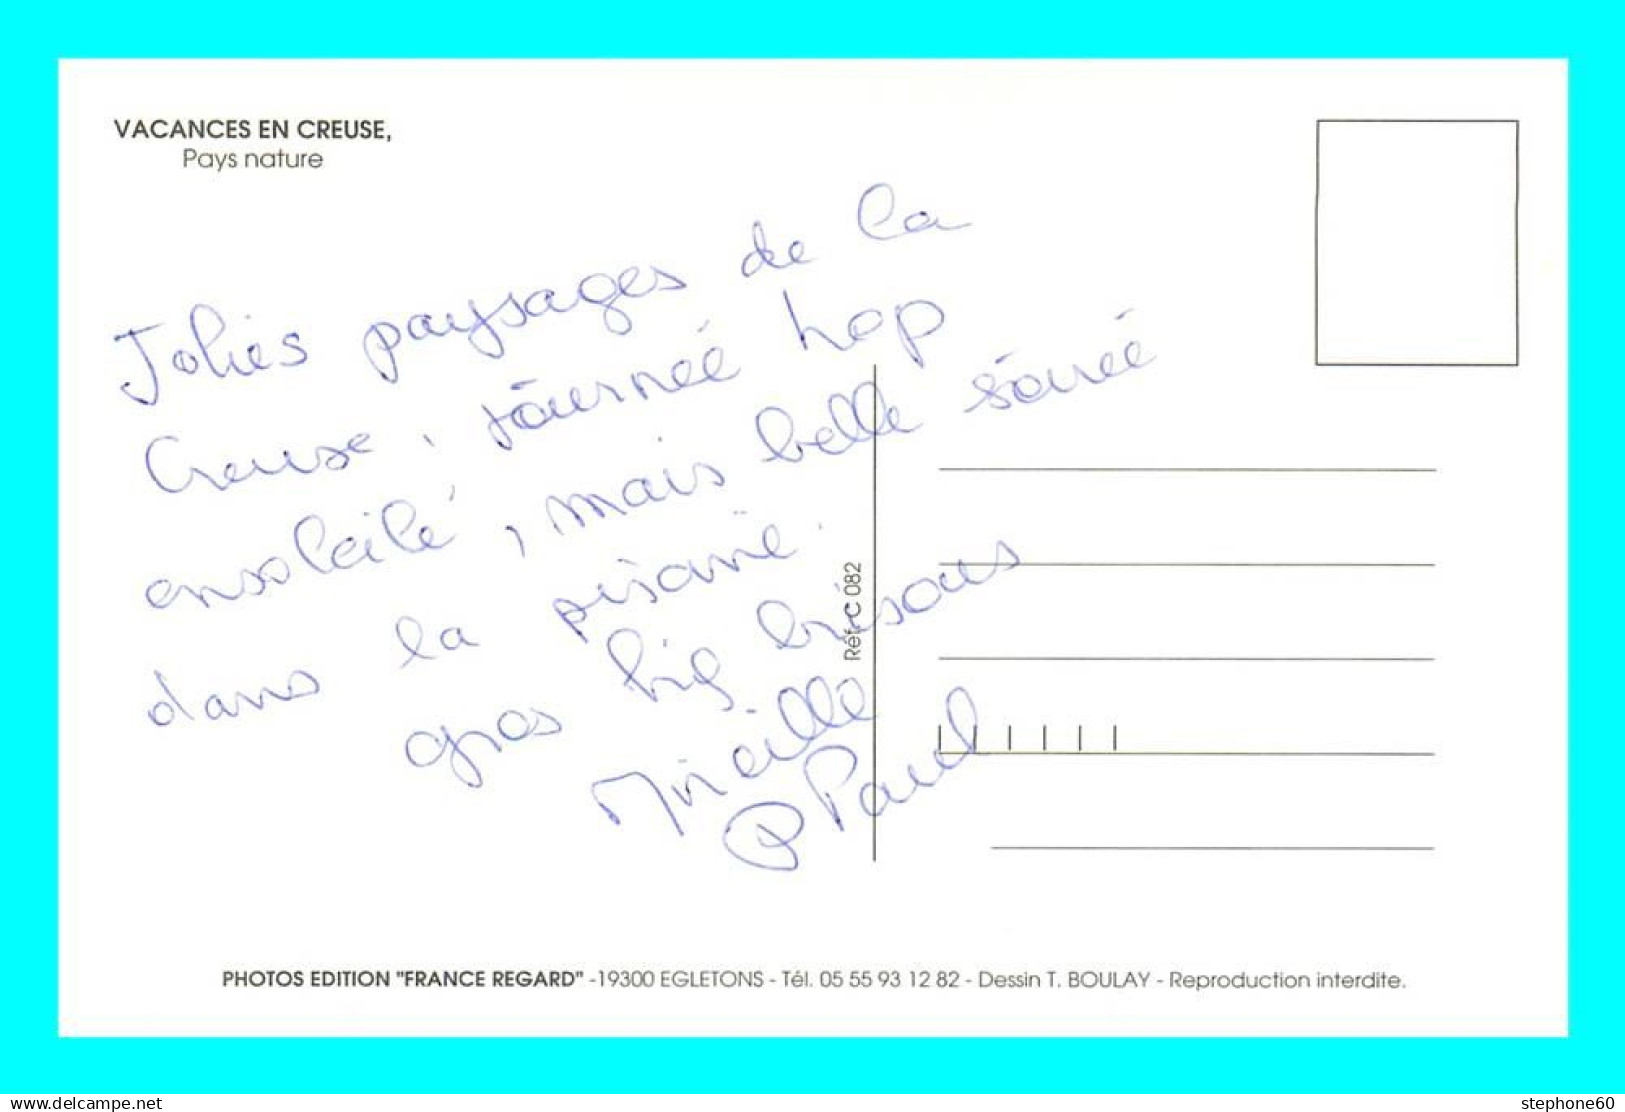 VACANCES EN CREUSE,
Pays nature
Jolies paysages de la
Creuse, journée
ensoleilé, mais belle soirée
dans la
gros big bisous
Mireille
Paul
Réf. C 082
PHOTOS EDITION "FRANCE REGARD" -19300 EGLETONS - Tél. 05 55 93 12 82 - Dessin T. BOULAY - Reproduction interdite.
www.delcampe.net
stephone60